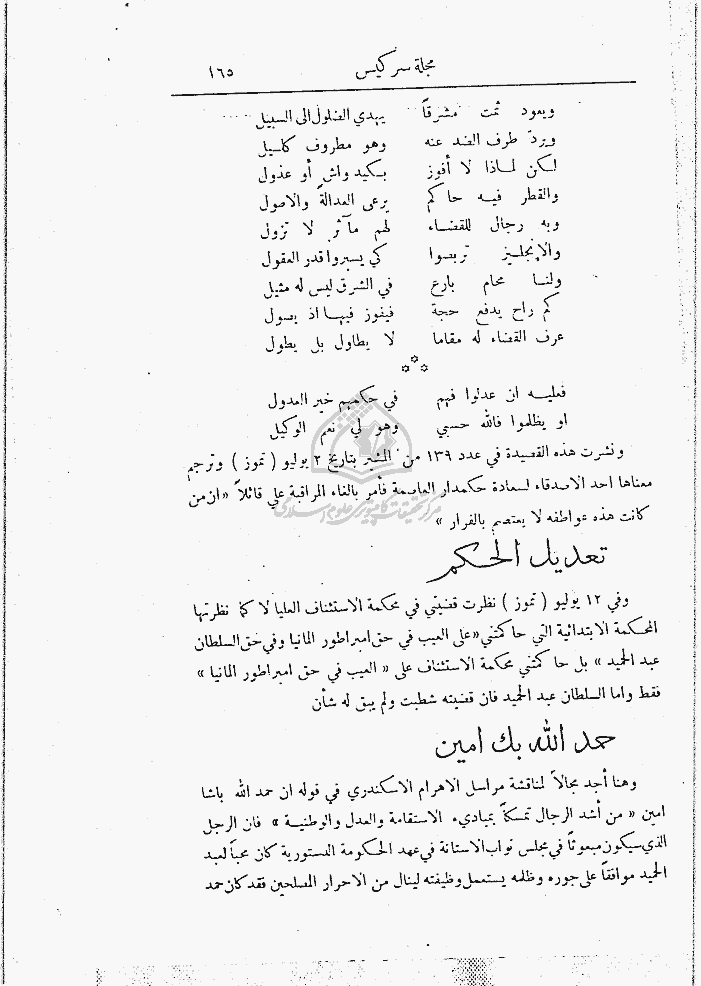 مجلة سركيس ١٦٥
ويعود ثمت مشرقاً يهدي الضلول الى السبيل
ويردّ طرف الضد عنه وهو مطروف كليل
لكن لماذا لا أفوز بكيد واشٍ أو عذول
والقطر فيه حاكم يرعى العدالة والاصول
وبه رجال للقضاء لهم مآثر لا تزول
والانجليز تربصوا كي يسبروا قدر العقول
ولنا محام بارع في الشرق ليس له مثيل
كم راح يدفع حجة فيفوز فيها اذ يصول
عرف القضاء له مقاما لا يطاول بل يطول
***
فعليه ان عدلوا فهم في حكمهم خير العدول
او يظلموا فالله حسبي وهو لي نعم الوكيل
ونشرت هذه القصيدة في عدد ١٣٩ من المشير بتاريخ ٢ يوليو ( تموز ) وترجم
معناها احد الاصدقاء لسعادة حكمدار العاصمة فأمر بالغاء المراقبة علي قائلاً « ان من
كانت هذه عواطفه لا يعتصم بالفرار »
تعديل الحكم
وفي ١٢ يوليو ( تموز ) نظرت قضيتي في محكمة الاستئناف العليا لا كما نظرتها
المحكمة الابتدائية التي حاكمتني « على العيب في حق امبراطور المانيا وفي حق السلطان
عبد الحميد » بل حاكمتني محكمة الاستئناف على « العيب في حق امبراطور المانيا »
فقط واما السلطان عبد الحميد فان قضيته شطبت ولم يبق له شأن
حمد الله بك امين
وهنا أجد مجالاً لمناقشة مراسل الاهرام الاسكندري في قوله ان حمد الله باشا
امين « من أشد الرجال تمسكاً بمبادىء الاستقامة والعدل والوطنية » فان الرجل
الذي سيكون مبعوثاً في مجلس نواب الاستانة في عهد الحكومة الدستورية كان محباً لعبد
الحميد موافقاً على جوره وظلمه يستعمل وظيفته لينال من الاحرار المصلحين فقد كان حمد
مرکز تحقیقات کامپیوتری علوم اسلامی